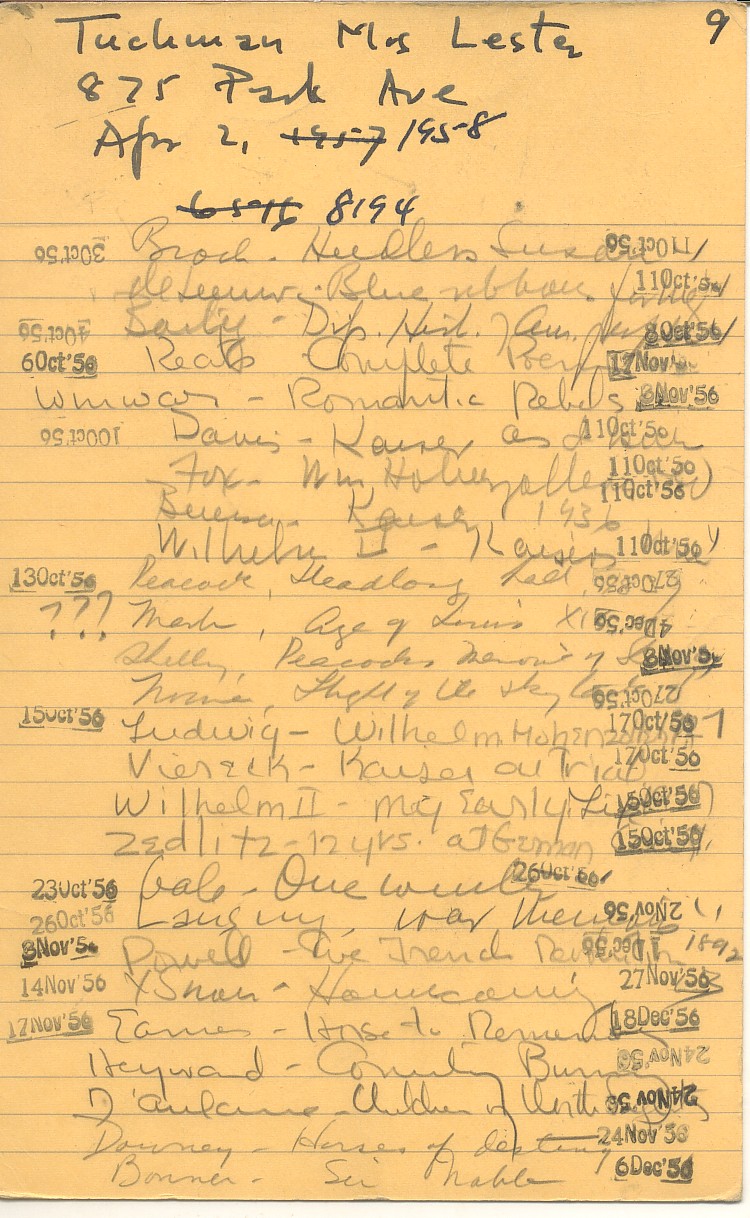 9
Tuchman Mrs Lester
875 Park Ave
Apr 2, 1957 1958
8194
3Oct'56 Brock - Heedless Susan 11Oct'56
de Leeuw - Blue ribbons for 11Oct'56
4Oct'56 Bailey - Dip. Hist. of Am. 8Oct'56
6Oct'56 Keats Complete Poems 17Nov
Winwar - Romantic Rebels 8Nov'56
10Oct'56 Davis - Kaiser as I 11Oct'56
Fox - Wm Hohenzollern 11Oct'56
11Oct'56
Kaiser 1936
Wilhelm II - Kaiser's 11Oct'56
13Oct'56 Peacock, Headlong Hall, 27Oct'56
??? , Age of Louis XI 4Dec'56
Shelley, Peacocks Memoirs of 8Nov'56
, Flight of the skylark 27Oct'56
15Oct'56 Ludwig - Wilhelm Hohenzollern 17Oct'56
Viereck - Kaiser on Trial 17Oct'56
Wilhelm II - My Early Life 15Oct'56
Zedlitz - 12 yrs. at German 15Oct'56
23Oct'56 Gale - One 26Oct'56
26Oct'56 , War Memoirs 2Nov'56
8Nov'56 Powell - The French 1Dec'56 1892
14Nov'56 X Snow - Homecoming 27Nov'56
17Nov'56 Eames - Horse to Remember 18Dec'56
Heyward - Country Bunny 24Nov'56
D'aulaire - Children of North 24Nov'56
Downey - Horses of destiny 24Nov'56
Bonner - Sir Noble 6Dec'56